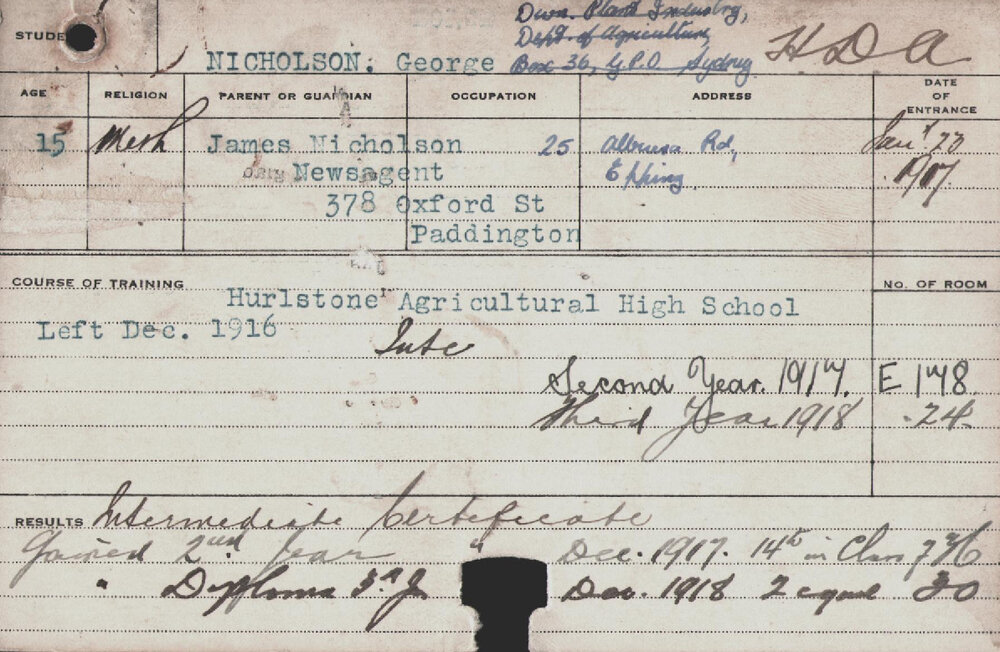 STUDE
Divn. Plant Industry,
Dept. of Agriculture
Box 36, G.P.O Sydney
H D A
NICHOLSON: George
AGE RELIGION PARENT OR GUARDIAN OCCUPATION ADDRESS DATE OF ENTRANCE
15 Meth James Nicholson 25 Albuera Rd, Jany 23
Newsagent Epping 1917
378 Oxford St
Paddington
COURSE OF TRAINING No. OF ROOM
Hurlstone Agricultural High School
Left Dec. 1916
Inte
Second Year. 1917. E 148
Third Year 1918 -24-
RESULTS Intermediate Certificate
Gained 2nd Year " Dec. 1917. 14th in Class 36
" Diploma 3rd Dec. 1918 2 equal 30